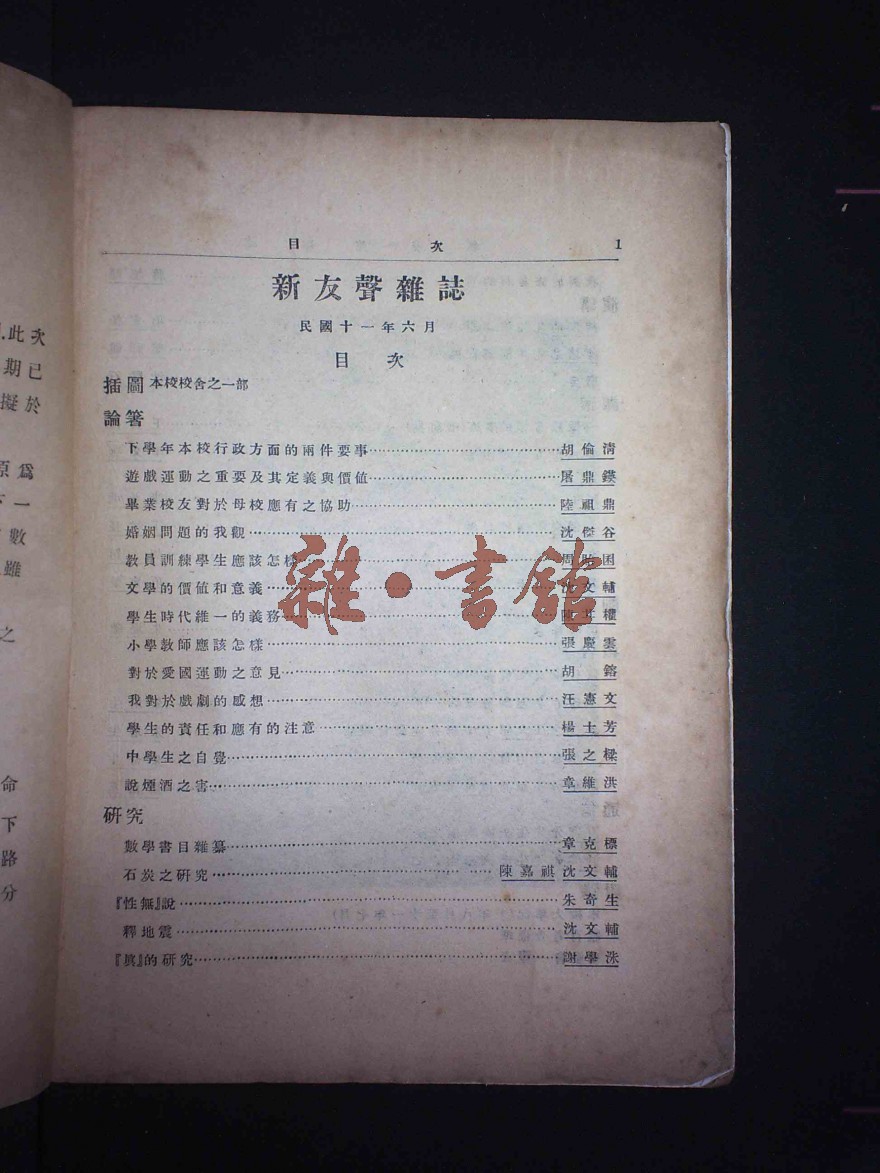 目 次 1
新友聲雜誌
民國十一年六月
目 次
插圖 本校校舍之一部
論箸
下學年本校行政方面的兩件要事 胡倫淸
遊戲運動之重要及其定義與價値 屠鼎鍈
畢業校友對於母校應有之協助 陸祖鼎
婚姻問題的我觀 沈傑谷
敎員訓練學生應該怎樣 周
文學的價値和意義 沈文輔
學生時代維一的義務 權
小學敎師應該怎樣 張慶雲
對於愛國運動之意見 胡鎔
我對於戲劇的感想 汪憲文
學生的責任和應有的注意 楊士芳
中學生之自覺 張之樑
說煙酒之害 章維洪
硏究
數學書目雜纂 章克標
石炭之研究 陳嘉祺 沈文輔
『性無』說 朱奇生
釋地震 沈文輔
『眞』的研究 謝學洙
雜·書館
.此次
期已
擬於
原爲
下一
數
雖
之
命
下
路
分